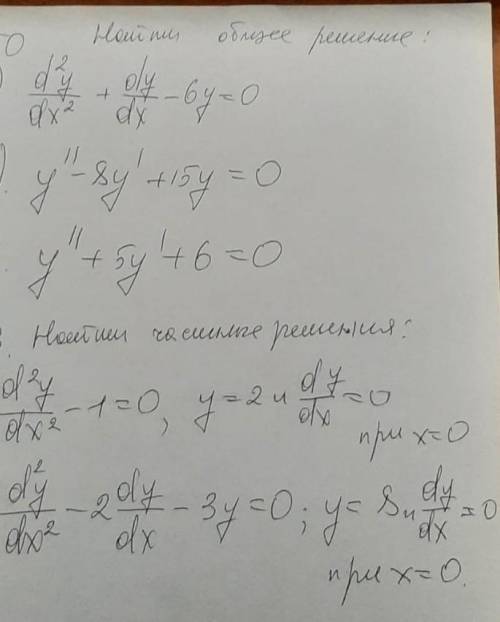 Найти общее решение:
) d²y/dx² + dy/dx - 6y = 0
) y'' - 8y' + 15y = 0
. y'' + 5y' + 6 = 0
. Найти частные решения:
d²y/dx² - 1 = 0, y = 2 и dy/dx = 0
при x = 0
d²y/dx² - 2 dy/dx - 3y = 0; y = 8 и dy/dx = 0
при x = 0.